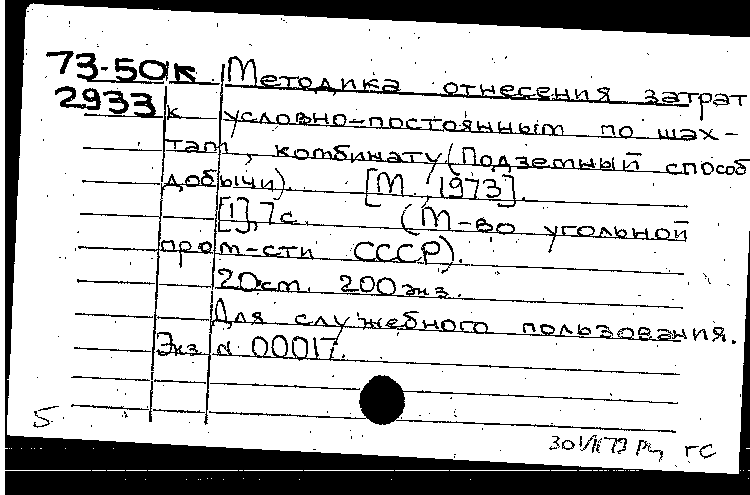 73-50к Методика отнесения затрат
2933 к условно-постоянным по шах-
там, комбинату (Подземный способ
добычи). [М., 1973].
[1], 7 с. (М-во угольной
пром-сти СССР).
20 см. 200 экз.
Для служебного пользования.
Экз. № 00017.
5
ГС